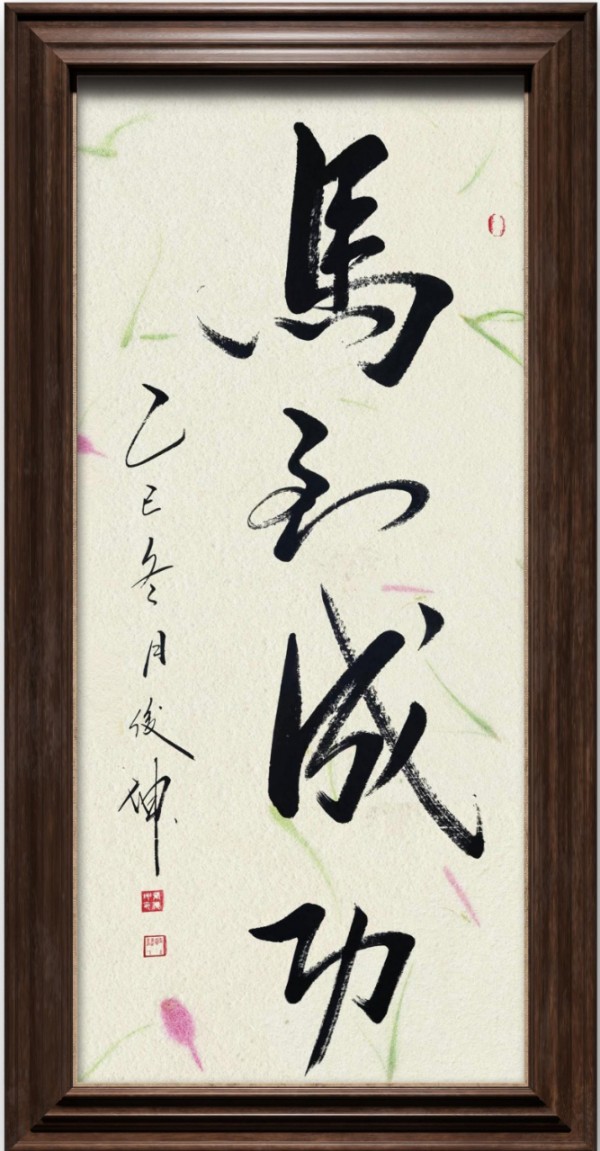 馬到成功
乙巳冬月俊坤